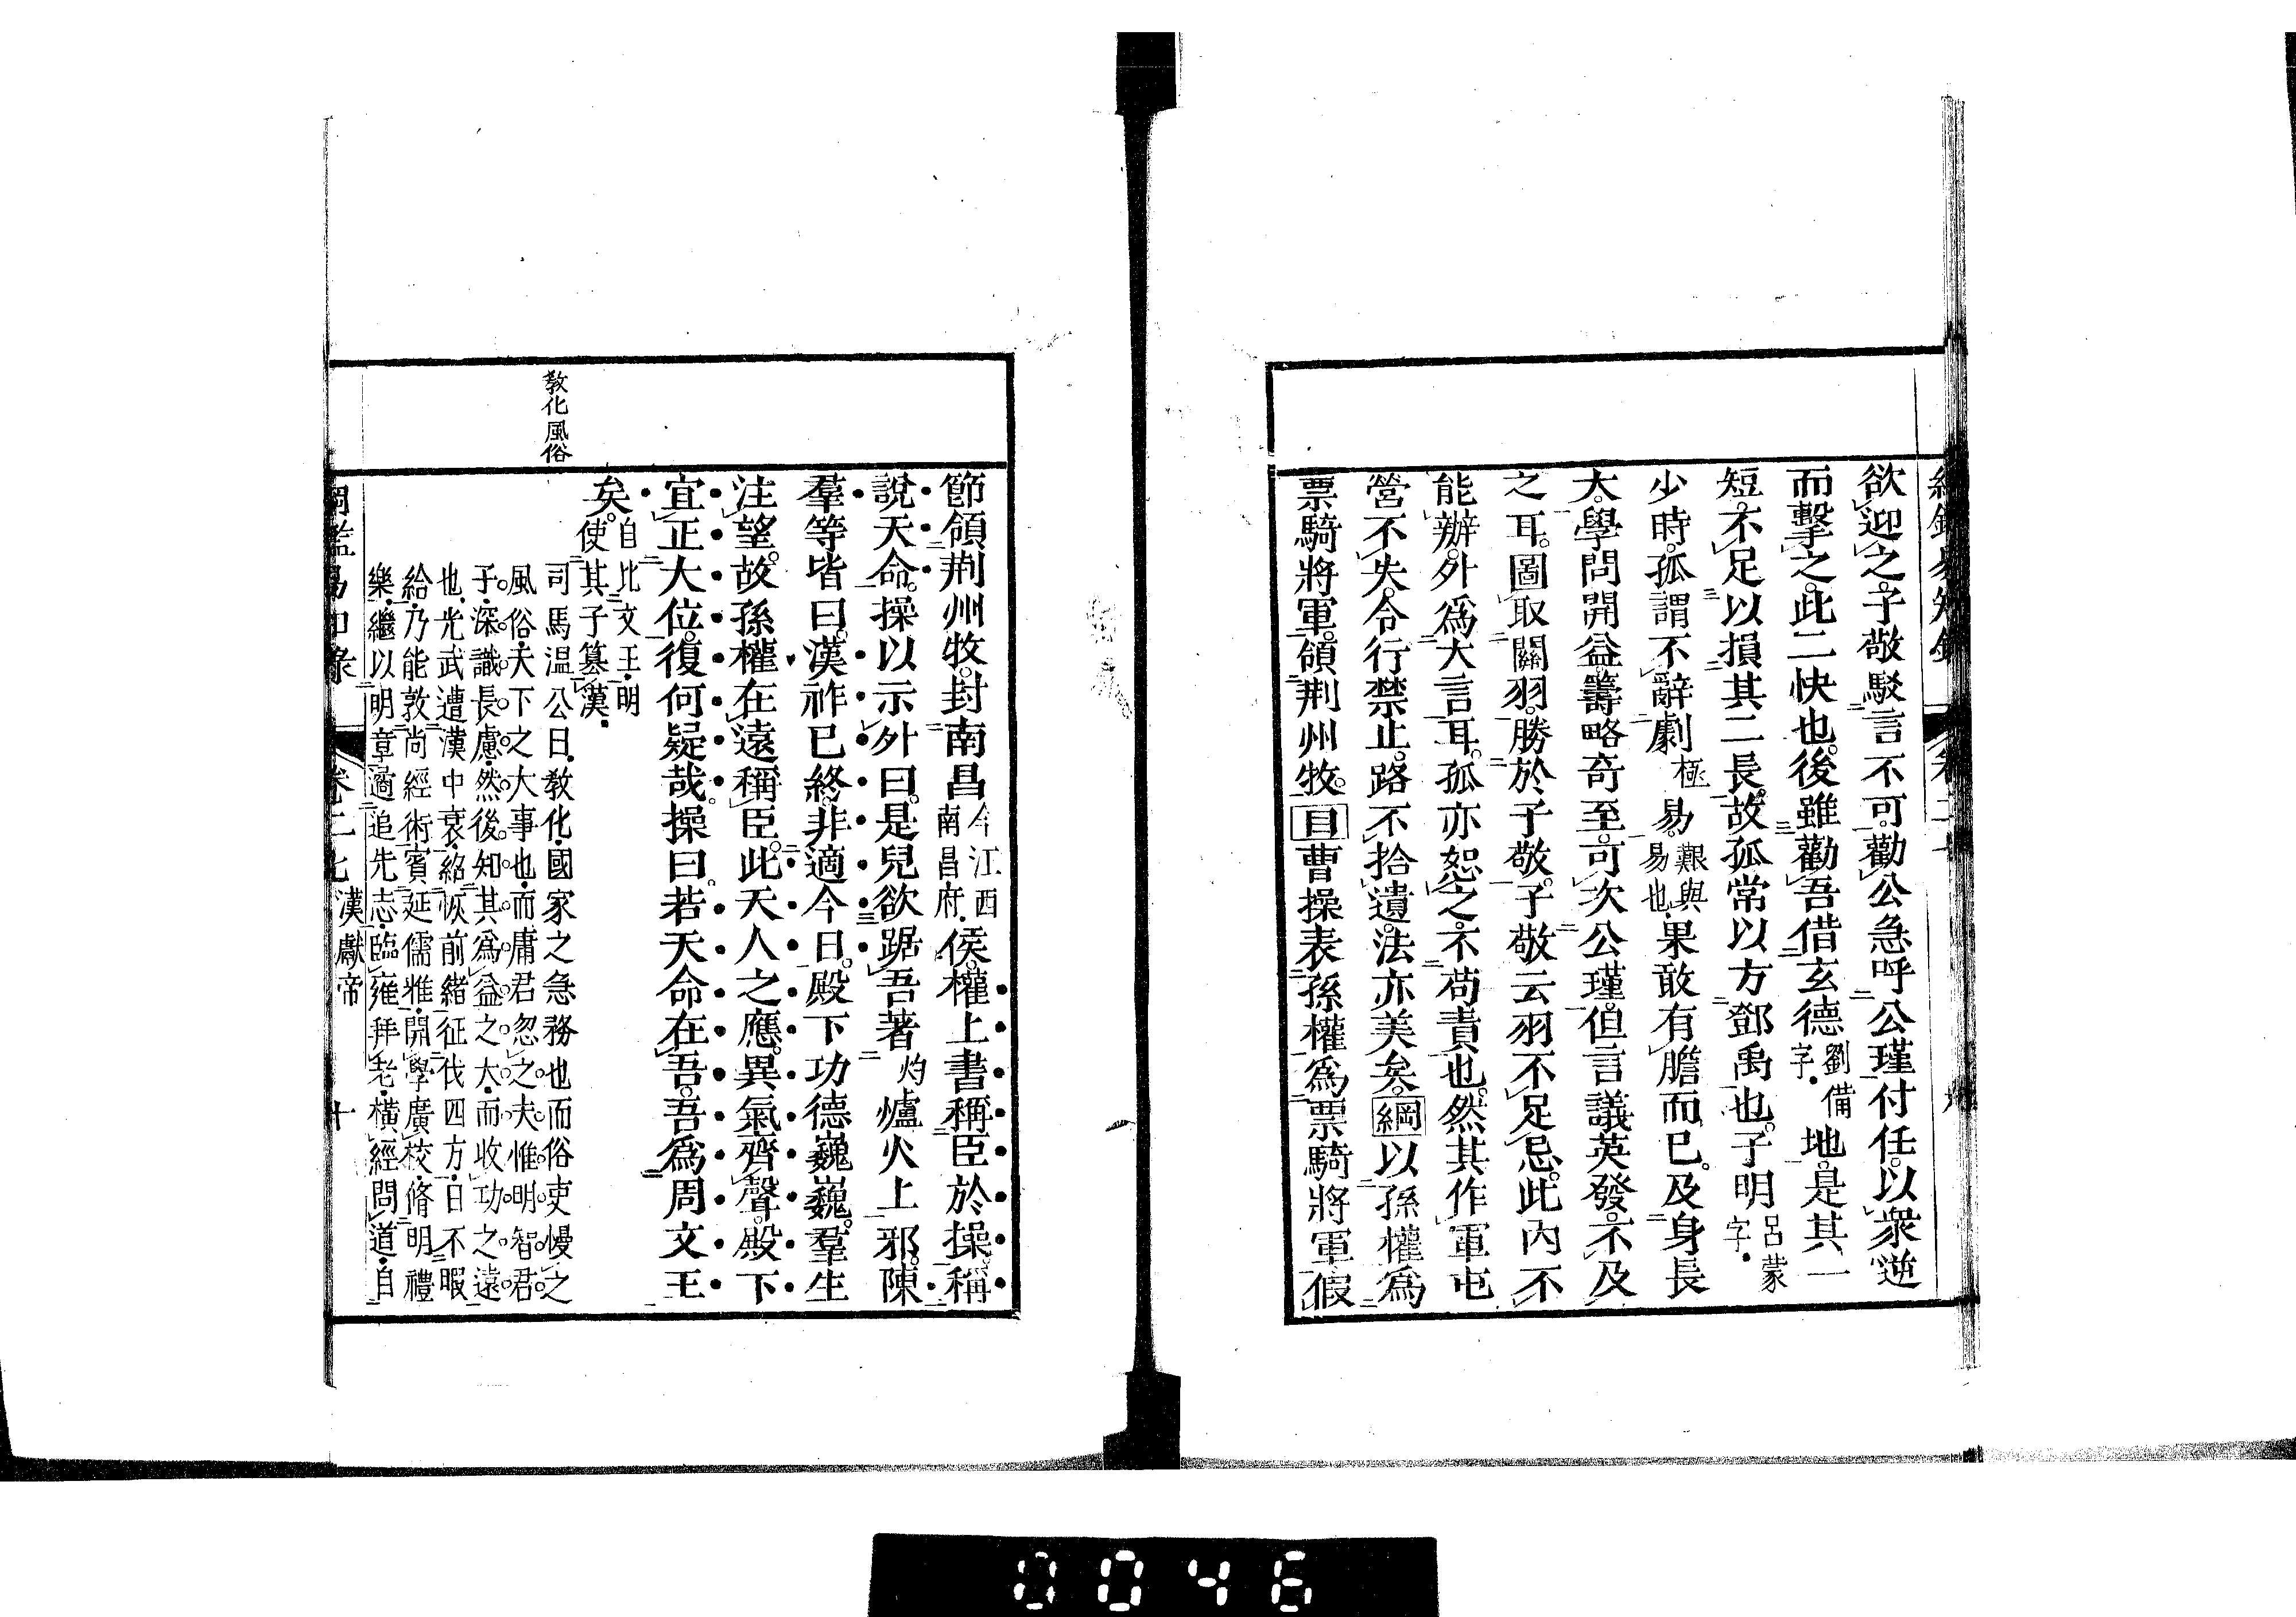 欲迎之。子敬駁言不可。勸公急呼公瑾付任。以衆逆
而擊之。此二快也。後雖勸吾借玄德劉備字。地。是其一
短。不足以損其二長。故孤常以方鄧禹也。子明呂蒙字。
少時。孤謂不辭劇極易。艱與易也。果敢有膽而已。及身長
大。學問開益。籌略奇至。可次公瑾。但言議英發。不及
之耳。圖取關羽。勝於子敬。子敬云羽不足忌。此內不
能辦。外爲大言耳。孤亦恕之。不苟責也。然其作軍屯
營不失。令行禁止。路不拾遺。法亦美矣。綱以孫權爲
票騎將軍。領荆州牧。目曹操表孫權爲票騎將軍假
節領荆州牧。封南昌今江西南昌府。侯。權上書稱臣於操。稱
說天命。操以示外曰。是兒欲踞吾著灼爐火上邪。陳
羣等皆曰。漢祚已終。非適今日。殿下功德巍巍。羣生
注望。故孫權在遠稱臣。此天人之應。異氣齊聲。殿下
宜正大位。復何疑哉。操曰。若天命在吾。吾爲周文王
矣。自比文王。明使其子篡漢。
教化風俗
司馬温公曰。教化。國家之急務也而俗吏慢之
風俗。天下之大事也。而庸君忽之夫惟明智君
子。深識長慮。然後知其爲益之大。而收功之遠
也。光武遭漢中衰。紹恢前緒征伐四方。日不暇
給。乃能敦尚經術賓延儒雅。開學廣校。脩明禮
樂。繼以明章遹追先志。臨雍拜老。橫經問道。自
卷二七 漢獻帝 十